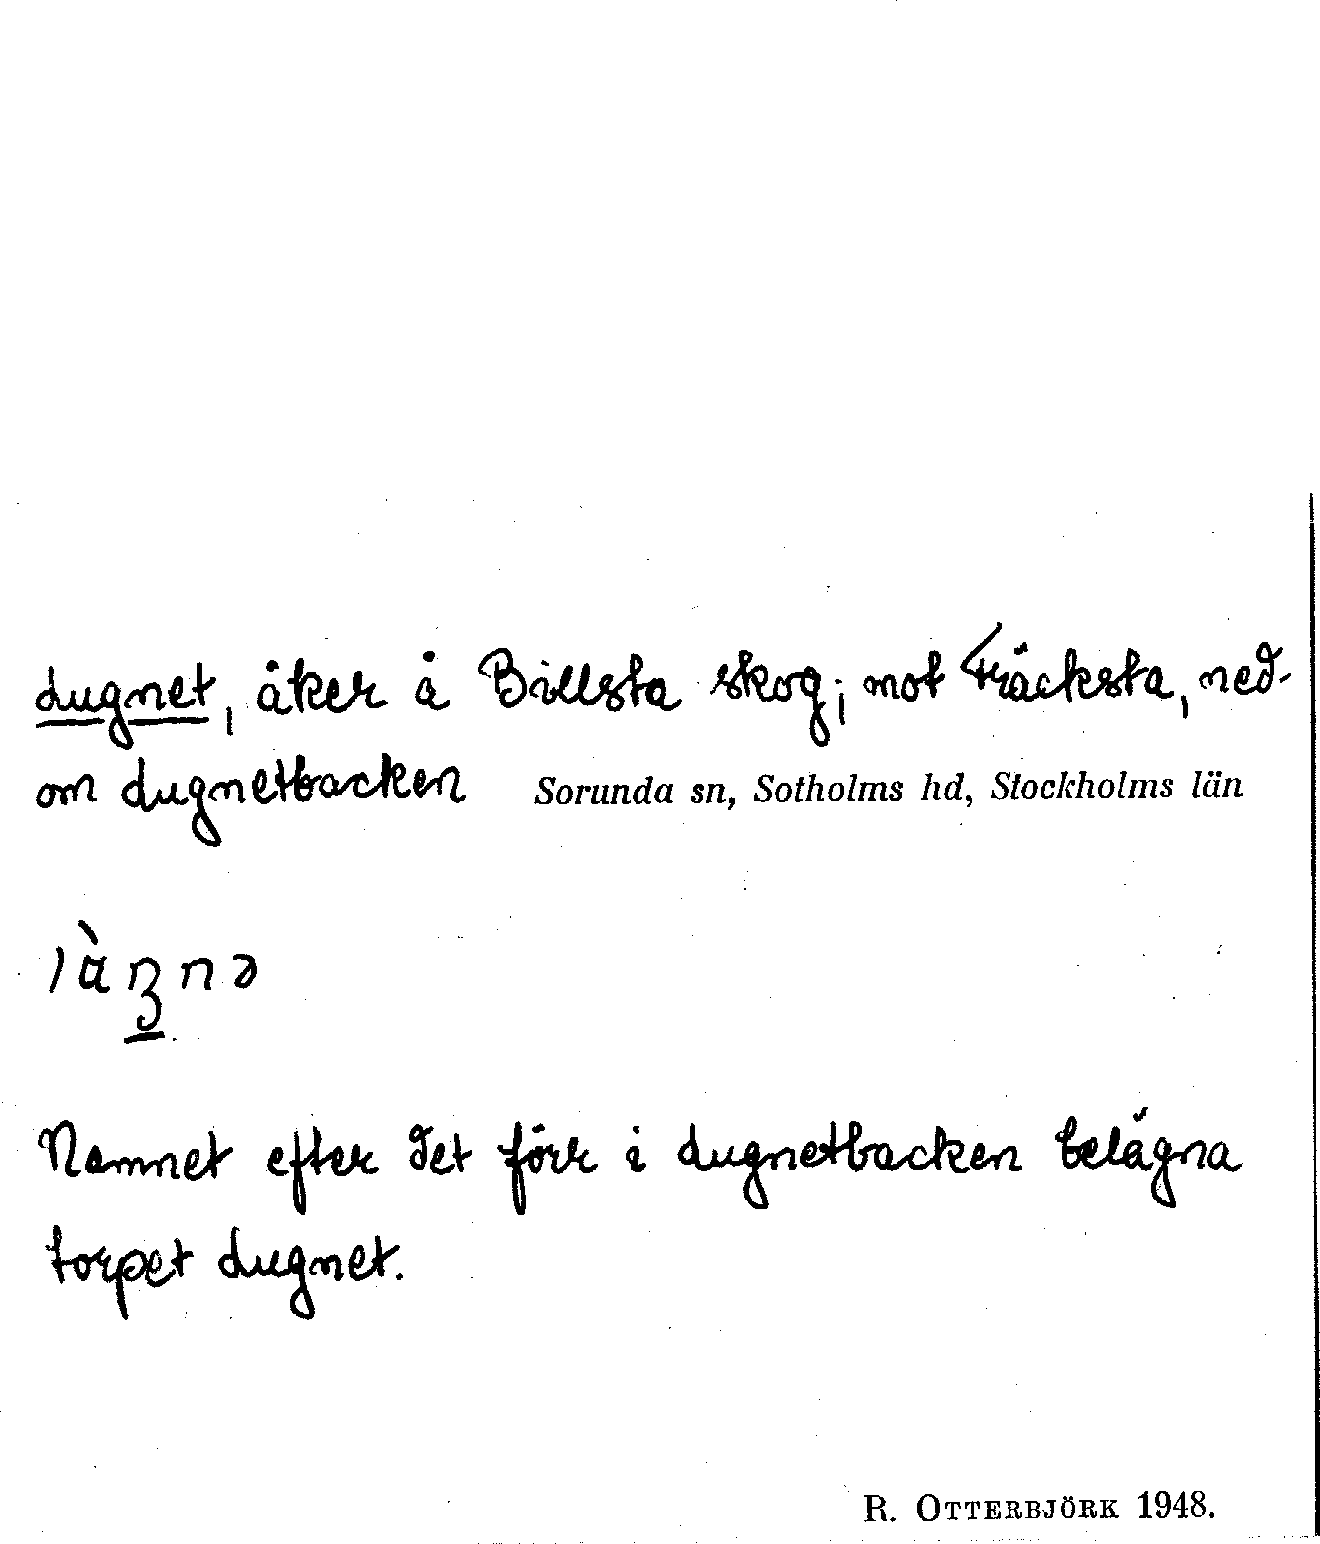 Lugnet, åker å Billsta skog; mot Fräcksta, ned-
om Lugnetbacken Sorunda sn, Sotholms hd, Stockholms län
Namnet efter det förr i Lugnetbacken belägna
torpet Lugnet.
R. OTTERBJÖRK 1948.